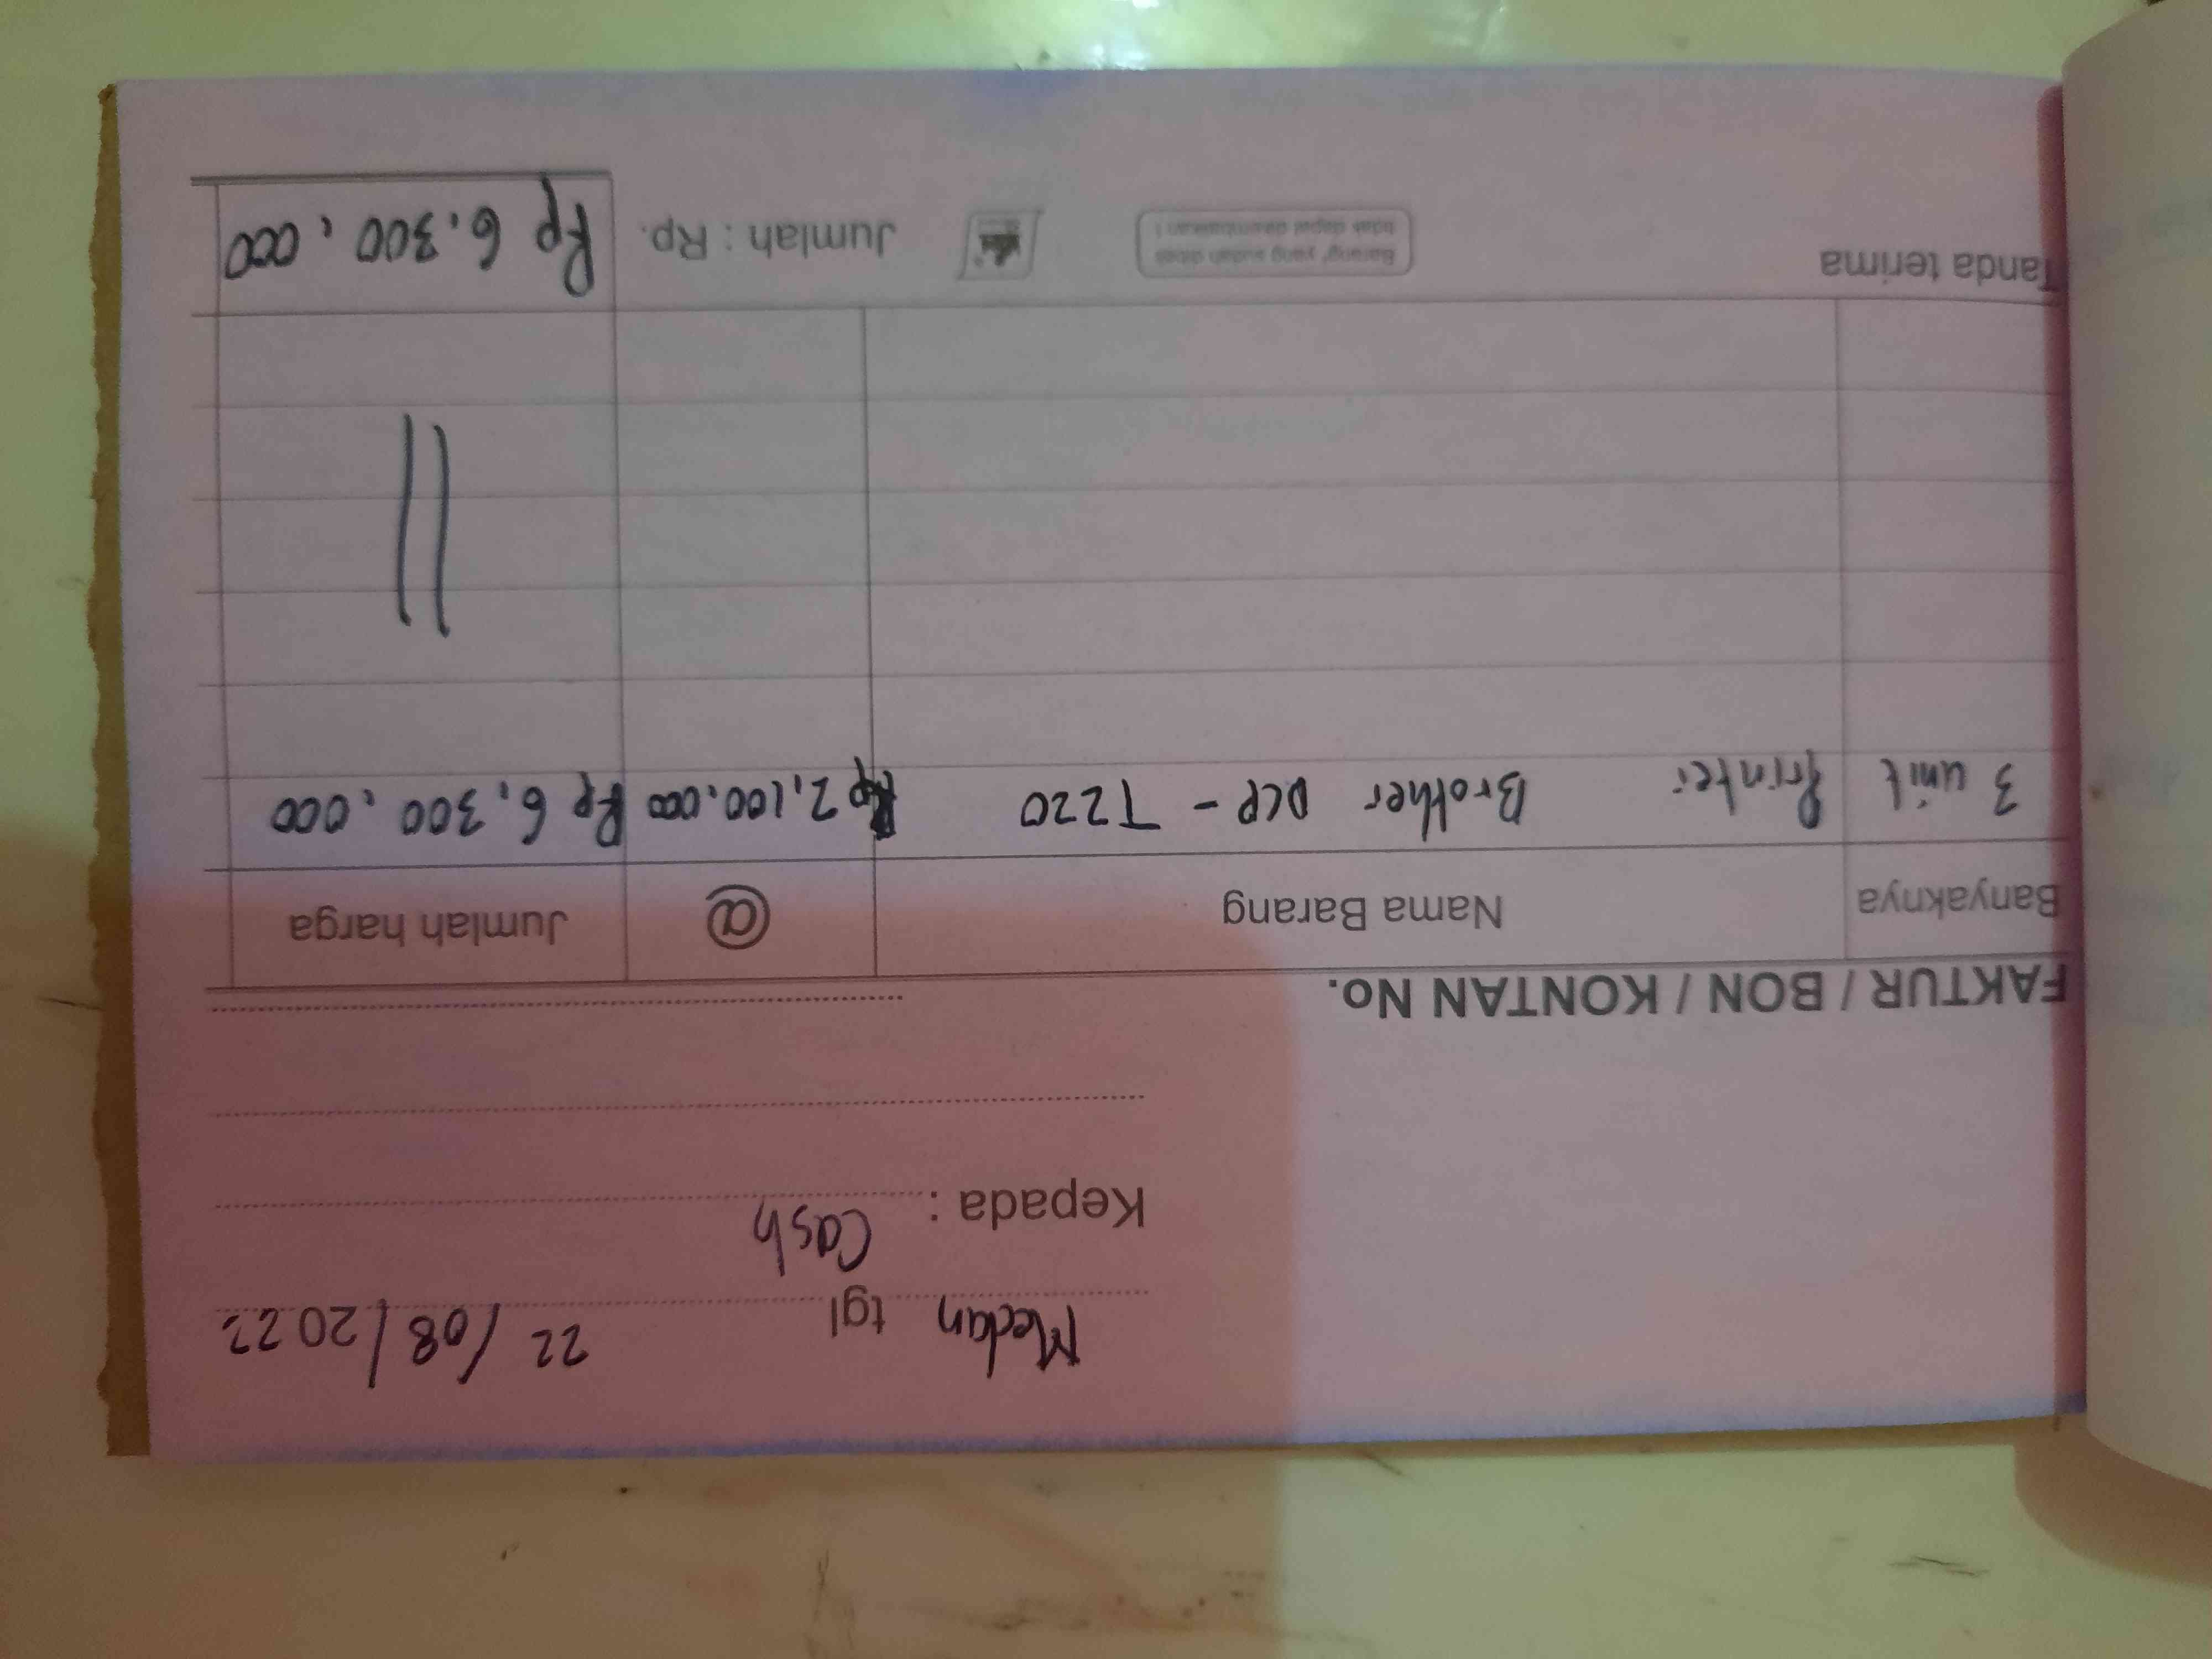 Medan tgl 22/08/2022
Kepada : Cash
FAKTUR / BON / KONTAN No.
Banyaknya Nama Barang @ Jumlah harga
3 unit Printer Brother DCP - T220 Rp 2,100.000 Rp 6,300,000
Tanda terima
Barang² yang sudah dibeli
tidak dapat dikembalikan !
Jumlah : Rp. Rp 6.300,000